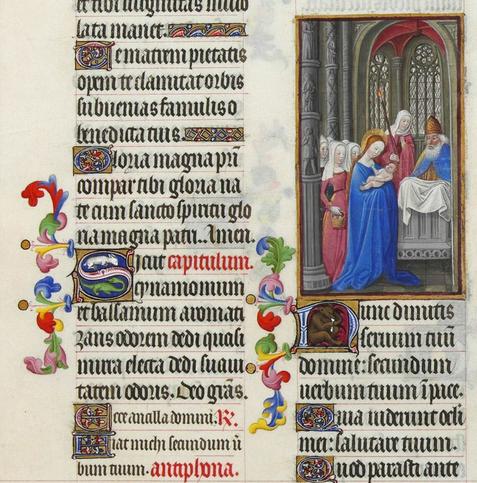 et tibi uirginitas inuio
lata manet.
Te matrem pietatis
opem te clamitat orbis
subuenias famulis o
benedicta tuis
Gloria magna pr̄i
compar tibi gloria na
te cum sancto spiritu glo
ria magna patri. Amen.
Sicut capitulum.
cynamomum
et balsamum aromati
zans odorem dedi quasi
mirra electa dedi suaui
tatem odoris. Deo grās.
Ecce ancilla domini. R̷.
Fiat michi secundum ū
bum tuum. antiphona.
Nunc dimitis
seruum tuū
domine: secundum
uerbum tuum ī pace.
Quia uiderunt oculi
mei: salutare tuum.
Quod parasti ante